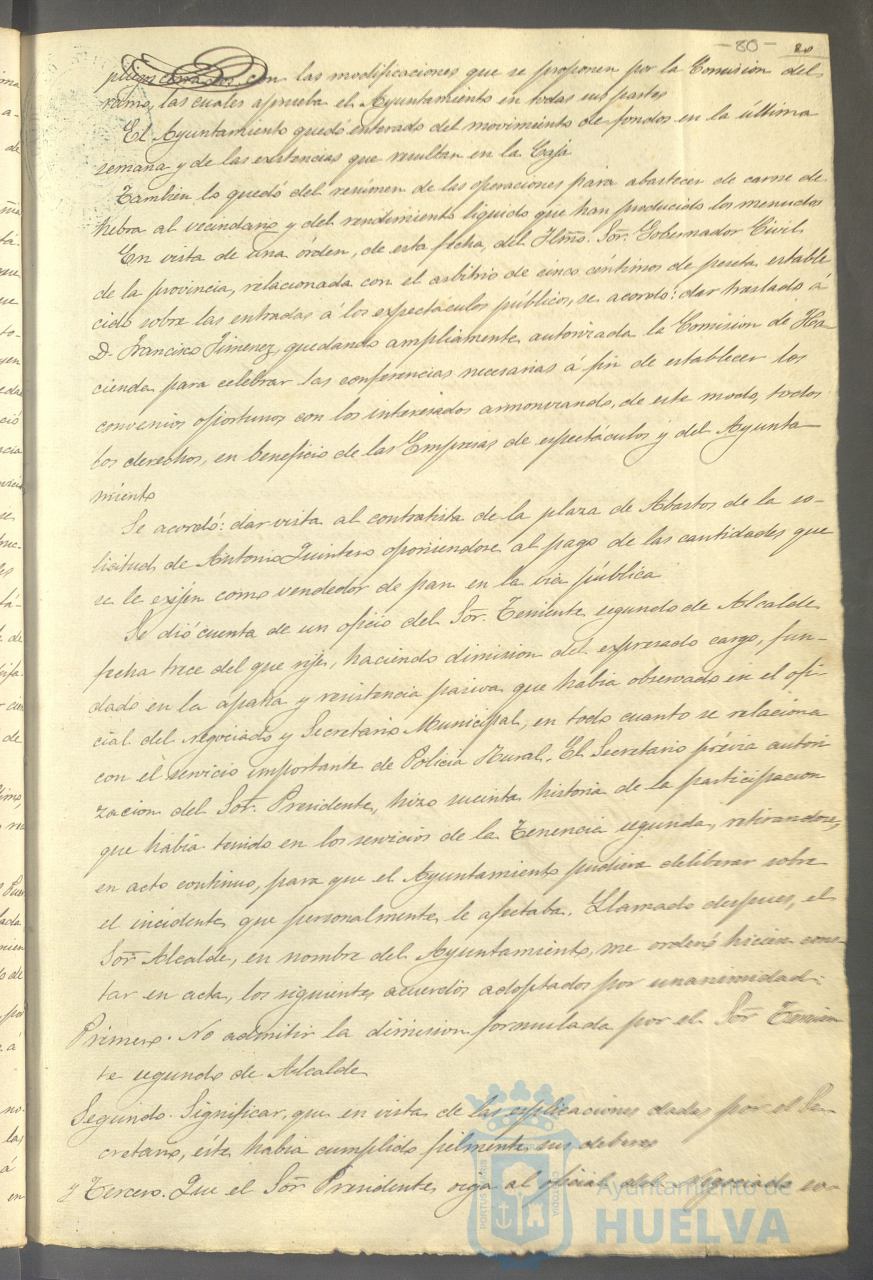 -80- 80
pliegos cerrados con las modificaciones que se proponen por la Comision del
ramo, las cuales aprueba el Ayuntamiento en todas sus partes
El Ayuntamiento quedó enterado del movimiento de fondos en la última
semana y de las existencias que resultan en la Caja
Tambien lo quedó del resúmen de las operaciones para abastecer de carne de
hebra al vecindario y del rendimiento líquido que han producido los menudos
En vista de una órden, de esta fecha, del Iltmo. Sor. Gobernador Civil
de la provincia, relacionada con el arbitrio de cinco céntimos de peseta estable
cido sobre las entradas á los espectáculos públicos, se acordó: dar traslado á
D. Francisco Jimenez, quedando ampliamente autorizada la Comision de Ha-
cienda para celebrar las conferencias necesarias á fin de establecer los
convenios oportunos con los interesados armonizando, de este modo, todos
los derechos, en beneficio de las Empresas de espectáculos y del Ayunta
miento
Se acordó: dar vista al contratista de la plaza de Abastos de la so-
licitud de Antonio Quintero oponiendose al pago de las cantidades que
se le exijen como vendedor de pan en la via pública
Se dió cuenta de un oficio del Sor. Teniente segundo de Alcalde,
fecha trece del que rije, haciendo dimision del expresado cargo, fun-
dado en la apatia y resistencia pasiva que habia observado en el ofi-
cial del negociado y Secretario Municipal, en todo cuanto se relaciona
con el servicio importante de Policia Rural. El Secretario prévia autori
zacion del Sor. Presidente, hizo sucinta historia de la participacion
que habia tenido en los servicios de la Tenencia segunda, retirandose,
en acto continuo, para que el Ayuntamiento pudiera deliberar sobre
el incidente que personalmente le afectaba. Llamado despues, el
Sor. Alcalde, en nombre del Ayuntamiento, me ordenó hiciera cons-
tar en acta, los siguientes acuerdos adoptados por unanimidad:
Primero. No admitir la dimision formulada por el Sor. Tenien
te segundo de Alcalde
Segundo. Significar, que en vista de las esplicaciones dadas por el Se-
cretario, éste habia cumplido fielmente sus deberes
y Tercero. Que el Sor. Presidente, oiga al oficial del negociado so-
PORTUS MARIS ET TERRAE CUSTODIA
Ayuntamiento de
HUELVA